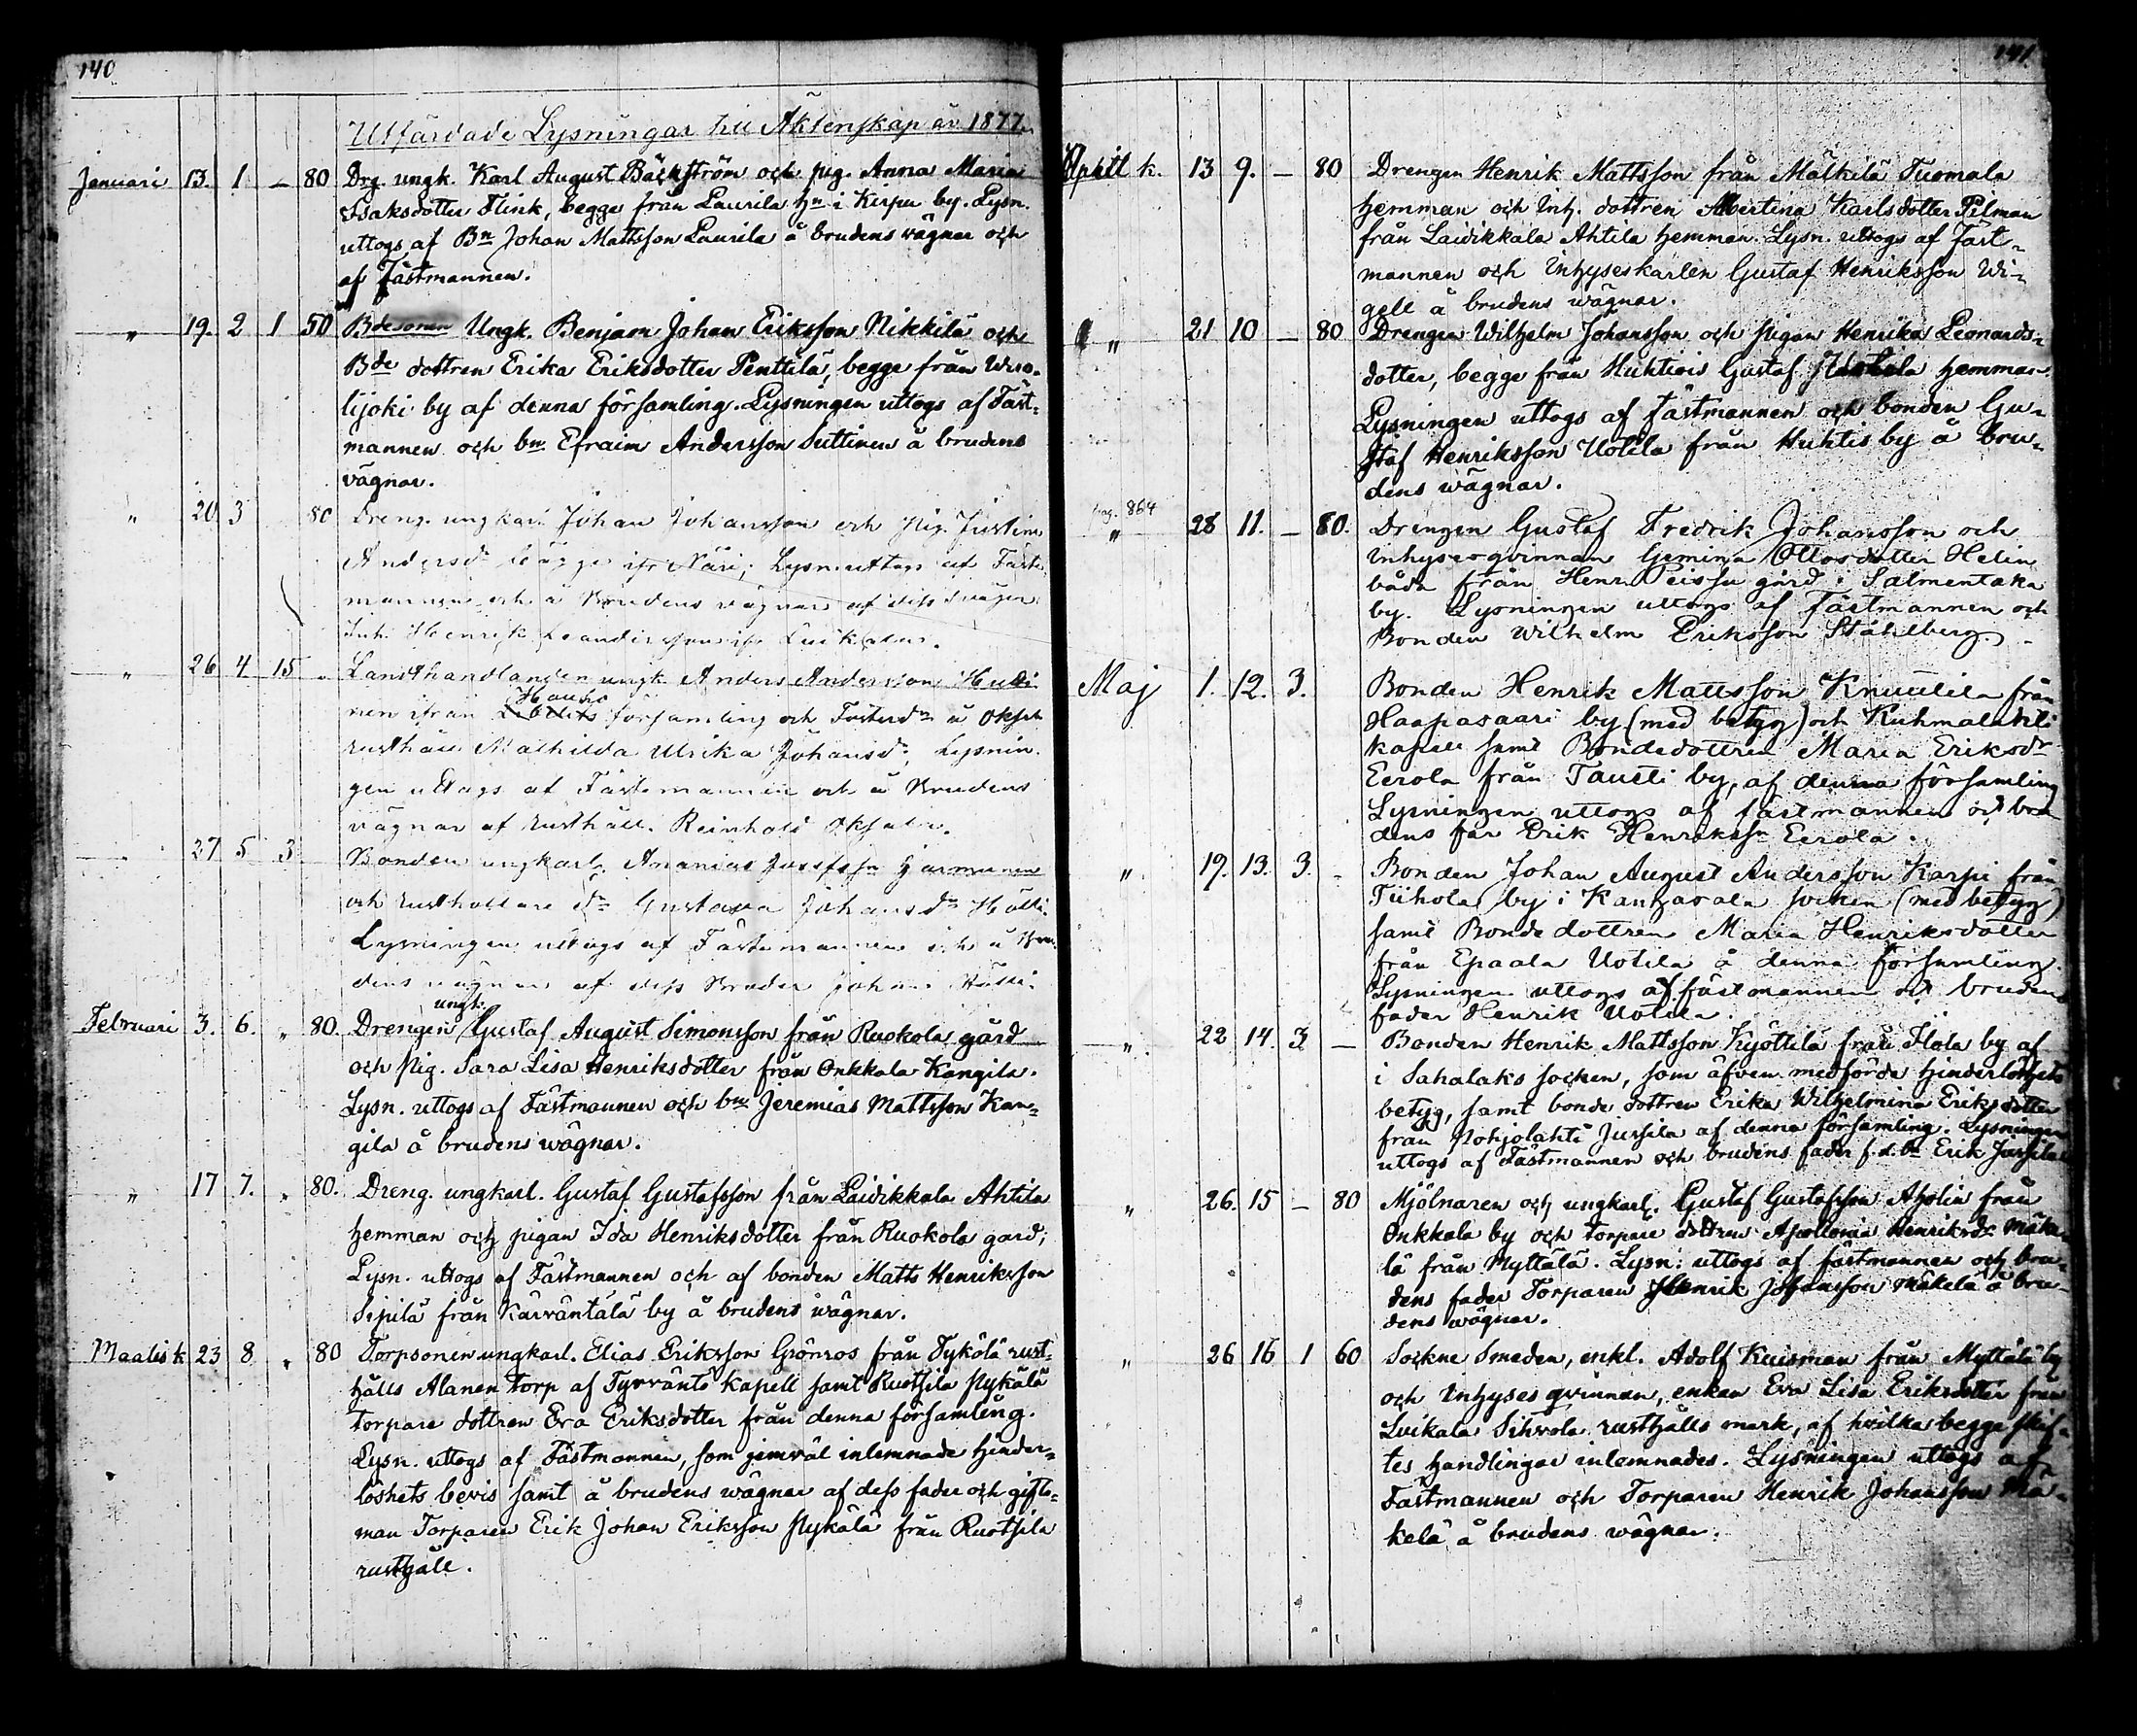 140
Utfärdade Lysningar till Äktenskap år 1877.
Januari 13. 1 – 80 Drg. ungk. Karl August Bäckström och pig. Anna Maria
Isaksdotter Flink, begge från Laurila hn i Kirpu by. Lysn.
uttogs af Bn Johan Mattsson Laurila å brudens vägnar och
af Fästmannen.
" 19. 2 1 50 Bdesonen Ungk. Benjam Johan Eriksson Nikkilä och
Bde dottren Erika Eriksdotter Penttilä, begge från Wiro-
lijoki by af denna församling. Lysningen uttogs af Fäst-
mannen och bn Efraim Andersson Suttinen å brudens
vägnar.
" 20 3 80 Dreng. ungkarl. Johan Johansson och Pig. Justina
Andersdr bägge ifr Näri; Lysn. uttogs af Fäste-
mannen och å Brudens vägnar af dess svåger
Inh. Henrik Leandersson ifr Luikala.
" 26 4 15 " Landthandlanden ungk. Anders Andersson Hudi-
Hauho
nen ifrån församling och Fosterdr å Oksala
rusthåll Mathilda Ulrika Johansdr. Lysnin-
gen uttogs af Fästemannen och å Brudens
vägnar af rusthåll. Reinhold Oksala.
" 27 5 3 Bonden ungkarl. Ananias Josefsn Jarmunen
och rusthållare dr Gustava Johansdr Hölli
Lysningen uttogs af Fästemannen och å Bru-
dens vägnar af dess Broder Johan Hölli.
ungk.
Februari 3. 6. " 80. Drengen Gustaf August Simonsson från Ruokola gård
och Pig. Sara Lisa Henriksdotter från Onkkala Kangila.
Lysn. uttogs af Fästmannen och bn Jeremias Mattsson Kan-
gila å brudens wägnar.
" 17 7. " 80. Dreng. ungkarl. Gustaf Gustafsson från Laidikkala Ahtila
hemman och pigan Ida Henriksdotter från Ruokola gård;
Lysn. uttogs af Fästmannen och af bonden Matts Henriksson
Sipilä från Kärväntälä by å brudens wägnar.
Maalisk 23 8 " 80 Torpsonen ungkarl. Elias Eriksson Grönros från Tykölä rust-
hålls Alanen torp af Tyrväntö Kapell samt Ruotsila Pykälä
torpare dottren Eva Eriksdotter från denna församling.
Lysn. uttogs af Fästmannen, som jemväl inlemnade hinder-
löshets bevis samt å brudens wägnar af dess fader och gifto-
man Torparen Erik Johan Eriksson Pykälä från Ruotsila
rusthåll.
141
Aphtl k. 13 9. – 80 Drengen Henrik Mattsson från Mälkilä Tuomala
hemman och Inh. dottren Albertina Karlsdotter Pilman
från Laidikkala Ahtila hemman. Lysn. uttogs af Fäst-
mannen och Inhyseskarlen Gustaf Henriksson Wi-
gell å brudens wägnar.
" 21 10 – 80 Drengen Wilhelm Johansson och pigan Henrika Leonards-
dotter, begge från Huhtiois Gustaf hemman.
Lysningen uttogs af Fästmannen och bonden Gu-
staf Henriksson Uotila från Huhtis by å bru-
dens wägnar.
pag. 864
" 28 11. – 80. Drengen Gustaf Fredrik Johansson och
Inhysesqvinnan Gemina Ottosdotter Helin
båda från Henn Peissu gård i Salmentaka
by. Lysningen uttogs af Fästmannen och
Bonden Wilhelm Eriksson Ståhlberg.
Maj 1. 12. 3. Bonden Henrik Mattsson Knuutila från
Haapasaari by (med betyg) och Kuhmalahti
kapell samt Bondedottren Maria Eriksdr
Eerola från Tausti by, af denna församling
Lysningen uttogs af fästmannen och bru
dens far Erik Henrikssn Eerola.
" 19. 13. 3. – Bonden Johan August Andersson Karpi från
Tiihola by i Kangasala socken (med betyg)
samt Bonde dottren Maria Henriksdotter
från Epaala Uotila å denna församling.
Lysningen uttogs af fästmannen och brudens
fader Henrik Uotila.
" 22 14. 3 – Bonden Henrik Mattsson Kyöttilä från Ilola by af
i Sahalaks socken, som äfven medförde hinderlöshets
betyg, samt bonde dottren Erika Wilhelmina Eriksdotter
från Pohjolahti Jussila af denna församling. Lysningen
uttogs af Fästmannen och brudens fader f.d. bn Erik Jussila
" 26. 15 – 80 Mjölnaren och ungkarl. Gustaf Gustafsson Aholin från
Onkkala by och torpare dottren Apollonia Henriksdr Mäke-
lä från Myttälä. Lysn. uttogs af fästmannen och bru-
dens fader Torparen Henrik Johansson Mäkelä å bru-
dens wägnar.
" 26 16 1 60 Sockne Smeden, enkl. Adolf Kuisman från Myttälä by
och Inhyses qvinnan, enkan Eva Lisa Eriksdotter från
Luikala Sihvola rusthålls mark, af hvilka begge skif-
tes handlingar inlemnades. Lysningen uttogs af
Fästmannen och Torparen Henrik Johansson Mä-
kelä å brudens wägnar.